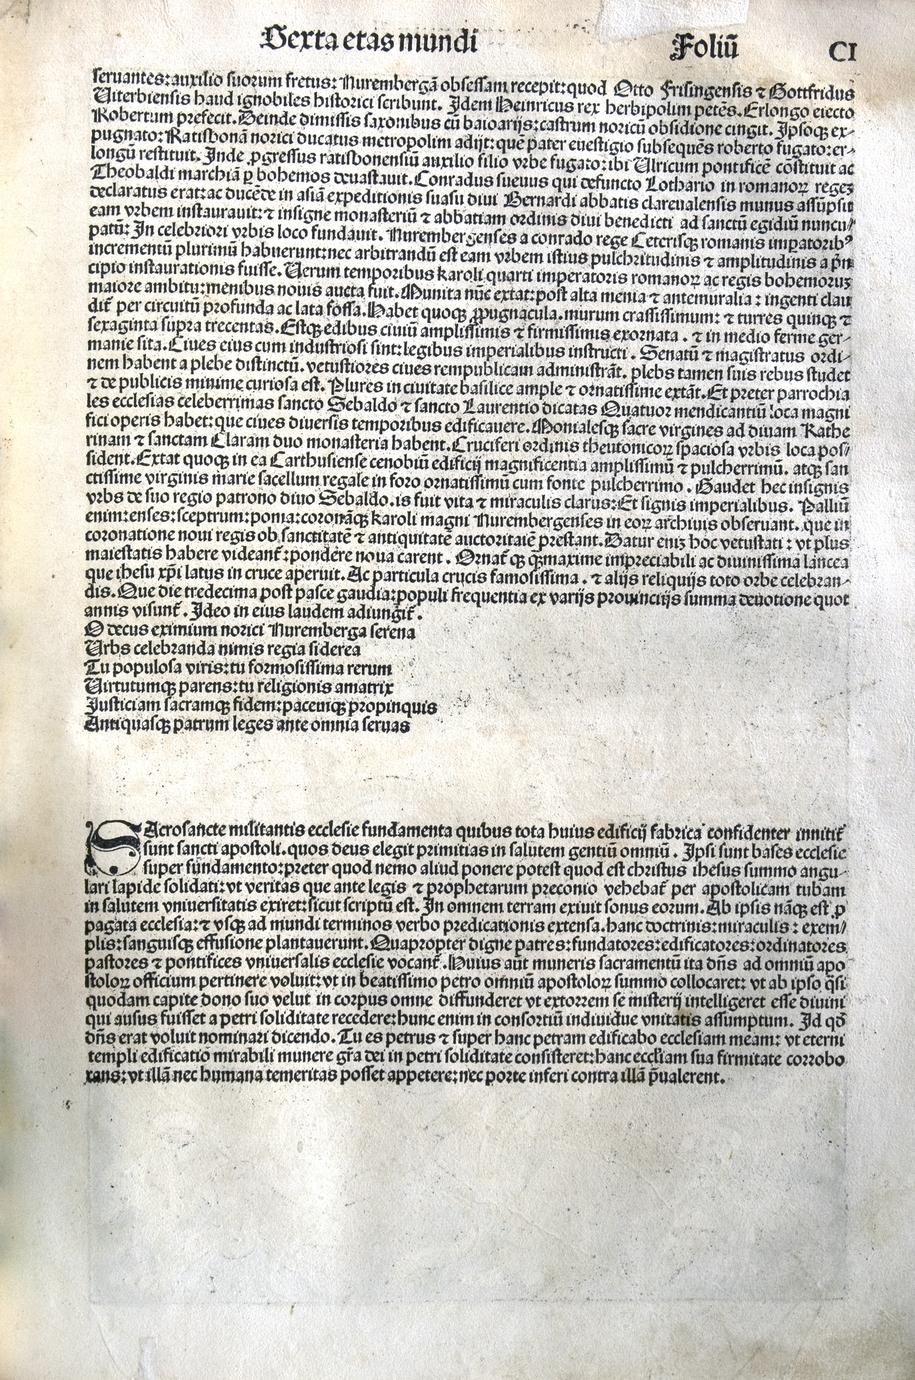 Sexta etas mundi Foliū CI
seruantes: auxilio suorum fretus: Nurembergā obsessam recepit: quod Otto Frisingensis ⁊ Gottfridus
Uiterbiensis haud ignobiles historici scribunt. Idem Heinricus rex herbipolim petēs. Erlongo eiecto
Robertum prefecit. Deinde dimissis saxonibus cū baioarijs: castrum noricū obsidione cingit. Ipsoqꝫ ex-
pugnato: Ratisbonā norici ducatus metropolim adijt: quē pater euestigio subsequēs roberto fugato: er-
longū restituit. Inde ꝓgressus ratisbonensiū auxilio filio vrbe fugato: ibi Ulricum pontificē cōstituit ac
Theobaldi marchiā ꝑ bohemos deuastauit. Conradus sueuus qui defuncto Lothario in romanoꝝ regeꝫ
declaratus erat: ac ducēde in asiā expeditionis suasu diui Bernardi abbatis clareualensis munus assūpsit
eam vrbem instaurauit: ⁊ insigne monasteriū ⁊ abbatiam ordinis diui benedicti ad sanctū egidiū nuncu/
patū: In celebriori vrbis loco fundauit. Nurembergenses a conrado rege Ceterisqꝫ romanis impatoribꝰ
incrementū plurimū habuerunt: nec arbitrandū est eam vrbem istius pulchritudinis ⁊ amplitudinis a prin
cipio instaurationis fuisse. Uerum temporibus Karoli quarti imperatoris romanoꝝ ac regis bohemoruꝫ
maiore ambitu: menibus nouis aucta fuit. Munita nūc extat: post alta menia ⁊ antemuralia: ingenti clau
dit᷑ per circuitū profunda ac lata fossa. Habet quoqꝫ ꝓpugnacula. murum crassissimum: ⁊ turres quinqꝫ ⁊
sexaginta supra trecentas. Estqꝫ edibus ciuiū amplissimis ⁊ firmissimis exornata. ⁊ in medio ferme ger-
manie sita. Ciues eius cum industriosi sint: legibus imperialibus instructi. Senatū ⁊ magistratus ordi-
nem habent a plebe distinctū. vetustiores ciues rempublicam administrāt. plebs tamen suis rebus studet
⁊ de publicis minime curiosa est. Plures in ciuitate basilice ample ⁊ ornatissime extāt. Et preter parrochia
les ecclesias celeberrimas sancto Sebaldo ⁊ sancto Laurentio dicatas Quatuor mendicantiū loca magni
fici operis habet: que ciues diuersis temporibus edificauere. Monialesqꝫ sacre virgines ad diuam Kathe
rinam ⁊ sanctam Claram duo monasteria habent. Cruciferi ordinis theutonicoꝝ spaciosa vrbis loca pos/
sident. Extat quoqꝫ in ea Carthusiense cenobiū edificij magnificentia amplissimū ⁊ pulcherrimū. atqꝫ san
ctissime virginis marie sacellum regale in foro ornatissimū cum fonte pulcherrimo. Gaudet hec insignis
vrbs de suo regio patrono diuo Sebaldo. is fuit vita ⁊ miraculis clarus: Et signis imperialibus. Palliū
enim: enses: sceptrum: poma: coronāqꝫ karoli magni Nurembergenses in eoꝝ archiuis obseruant. que in
coronatione noui regis ob sanctitatē ⁊ antiquitatē auctoritatē prestant. Datur eniꝫ hoc vetustati: vt plus
maiestatis habere videant᷑: pondere noua carent. Ornat᷑ qꝫ qꝫmaxime impreciabili ac diuinissima lancea
que ihesu xp̄i latus in cruce aperuit. Ac particula crucis famosissima. ⁊ alijs reliquijs toto orbe celebran-
dis. Que die tredecima post pasce gaudia: populi frequentia ex varijs prouincijs summa deuotione quot
annis visunt᷑. Ideo in eius laudem adiungit᷑.
O decus eximium norici Nuremberga serena
Urbs celebranda nimis regia siderea
Tu populosa viris: tu formosissima rerum
Uirtutumqꝫ parens: tu religionis amatrix
Justiciam sacramqꝫ fidem: pacemqꝫ propinquis
Antiquasqꝫ patrum leges ante omnia seruas
SAcrosancte militantis ecclesie fundamenta quibus tota huius edificij fabrica confidenter innitit᷑
sunt sancti apostoli. quos deus elegit primitias in salutem gentiū omniū. Ipsi sunt bases ecclesie
super fundamento: preter quod nemo aliud ponere potest quod est christus ihesus summo angu-
lari lapide solidati: vt veritas que ante legis ⁊ prophetarum preconio vehebat᷑ per apostolicam tubam
in salutem vniuersitatis exiret: sicut scriptū est. In omnem terram exiuit sonus eorum. Ab ipsis nāqꝫ est ꝓ
pagata ecclesia: ⁊ vsqꝫ ad mundi terminos verbo predicationis extensa. hanc doctrinis: miraculis: exem/
plis: sanguisqꝫ effusione plantauerunt. Quapropter digne patres: fundatores: edificatores: ordinatores
pastores ⁊ pontifices vniuersalis ecclesie vocant᷑. Huius aūt muneris sacramentū ita dn̄s ad omniū apo
stoloꝝ officium pertinere voluit: vt in beatissimo petro omniū apostoloꝝ summo collocaret: vt ab ipso q̄si
quodam capite dono suo velut in corpus omne diffunderet vt extorrem se misterij intelligeret esse diuini
qui ausus fuisset a petri soliditate recedere: hunc enim in consortiū indiuidue vnitatis assumptum. Id qd̄
dn̄s erat voluit nominari dicendo. Tu es petrus ⁊ super hanc petram edificabo ecclesiam meam: vt eterni
templi edificatio mirabili munere gr̄a dei in petri soliditate consisteret: hanc eccl̄iam sua firmitate corrobo
rans: vt illā nec humana temeritas posset appetere: nec porte inferi contra illā p̄ualerent.